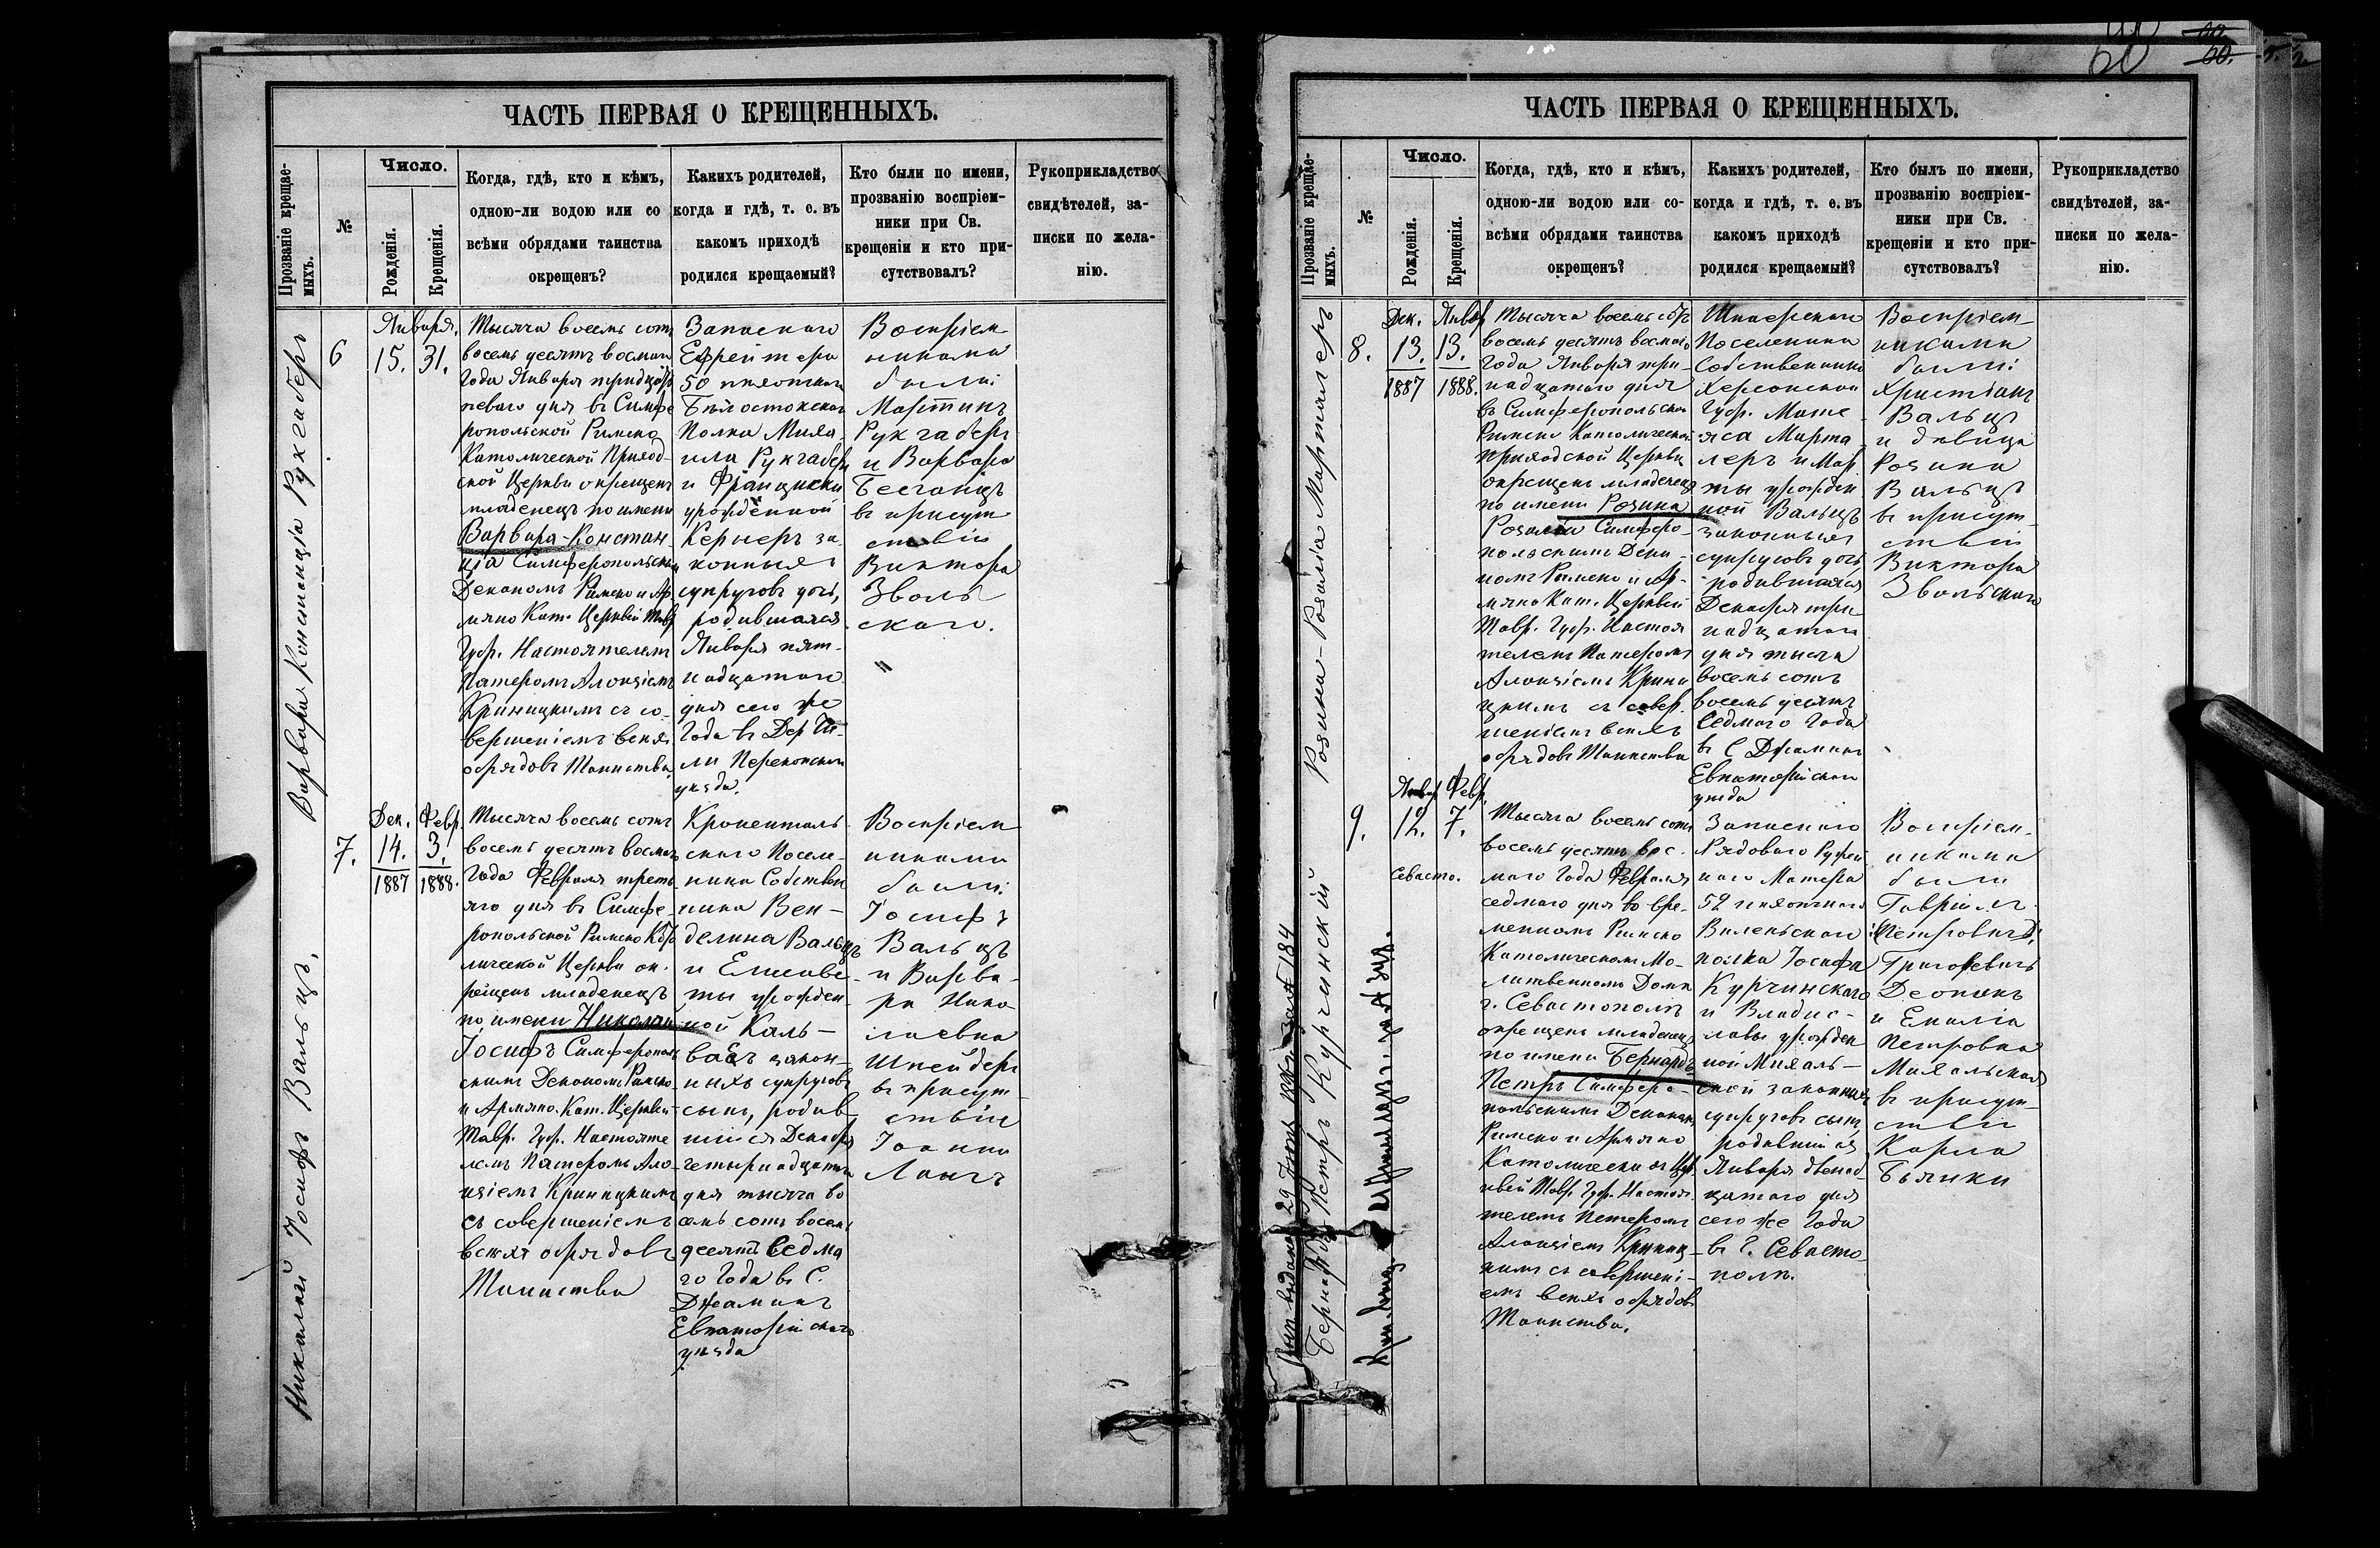 60
ЧАСТЬ ПЕРВАЯ О КРЕЩЕННЫХЪ.
Прозваніе крещае-
мыхъ.
№
Число.
Рожденія.
Крещенія.
Когда, гдѣ, кто и кѣмъ,
одною-ли водою или со
всѣми обрядами таинства
окрещенъ?
Какихъ родителей,
когда и гдѣ, т. е. въ
какомъ приходѣ
родился крещаемый?
Кто были по имени,
прозванію воспріем-
ники при Св.
крещеніи и кто при-
сутствовалъ?
Рукоприкладство
свидѣтелей, за-
писки по жела-
нію.
Варвара Констанція Рукгаберъ
6
Января.
15. 31.
Тысяча восемь сотъ
восемь десятъ восмаго
Года Января тридцать
перваго дня въ Симфе
ропольской Римско
Католической Приход-
ской Церкви окрещенъ
младенецъ по имени
Варвара-Констан
ція Симферопольскимъ
Деканомъ Римско и Ар
мяно Кат. Церквей Тавр
Губ. Настоятелемъ
Патеромъ Алоизіемъ
Криницкимъ съ со-
вершеніемъ всѣхъ
обрядовъ Таинства
Запаснаго
Ефрейтера
50 пѣхотнаго
Бѣлостокскаго
Полка Миха-
ила Рукгаберъ
и Франциски
урожденной
Кернеръ за
конныхъ
супруговъ дочь,
родившаяся
Января пят-
надцатаго
дня сего же
Года въ Дер
ли Перекопскаго
уѣзда.
Воспріем-
никами
были:
Мартинъ
Рукгаберъ
и Варвара
въ присут
ствіи
Виктора
Зволь
скаго.
Николай Іосифъ Вальцъ.
7.
Дек. Февр.
14. 3.
1887 1888.
Тысяча восемь сотъ
восемь десятъ восмаго
Года Февраля треть
яго дня въ Симфе-
ропольской Римско Като
лической Церкви ок-
рещенъ младенецъ
по имени Николай
Іосифъ Симферополь
скимъ Деканомъ Римско
и Армяно. Кат. Церквей
Тавр. Губ. Настояте
лемъ Патеромъ Ало-
изіемъ Криницкимъ
съ совершеніемъ
всѣхъ обрядовъ
Таинства
Кроненталь
скаго Поселе-
нина Собствен
ника Вен-
делина Вальцъ
и Елисаве-
ты урожден-
ной Каль-
закон-
ныхъ супруговъ
сынъ, родив-
шійся Декабря
четырнадцатаго
дня тысяча во
семь сотъ восемь
десятъ седма
го Года въ С.
Джаминъ
Евпаторійскаго
уѣзда
Воспріем
никами
были:
Іосифъ
Вальцъ
и Варва-
ра Нико-
лаевна
Шнейдеръ
въ присут-
ствіи
Іоанна
Лангъ
ЧАСТЬ ПЕРВАЯ О КРЕЩЕННЫХЪ.
Прозваніе крещае-
мыхъ.
№
Число.
Рожденія.
Крещенія.
Когда, гдѣ, кто и кѣмъ,
одною-ли водою или со-
всѣми обрядами таинства
окрещенъ?
Какихъ родителей,
когда и гдѣ, т. е. въ
какомъ приходѣ
родился крещаемый?
Кто былъ по имени,
прозванію воспріем-
ники при Св.
крещеніи и кто при-
сутствовалъ?
Рукоприкладство
свидѣтелей, за-
писки по жела-
нію.
Розина-Розалія Марталеръ
8.
Дек. Январ
13. 13.
1887 1888.
Тысяча восемь сотъ
восемь десятъ восмаго
Года Января три-
надцатаго дня
въ Симферопольской
Римско Католической
Приходской Церкви
окрещенъ младенецъ
по имени Розина
Розалія Симферо-
польскимъ Дека-
номъ Римско и Ар-
мяно Кат. Церквей
Тавр. Губ. Настоя
телемъ Патеромъ
Алоизіемъ Крини
цкимъ съ совер-
шеніемъ всѣхъ
обрядовъ Таинства
Шпаерскаго
Поселенина
Собственника
Херсонской
Губ. Мате-
яса Марта
леръ и Мар
ты урожден
ной Вальцъ
законныхъ
супруговъ дочь
родившаяся
Декабря три
надцатаго
дня тысяча
восемь сотъ
восемь десятъ
седмаго Года
въ С Джаминъ
Евпаторійскаго
уѣзда
Воспріем-
никами
были:
Христіанъ
Вальцъ
и дѣвица
Розина
Вальцъ
въ присут-
ствіи
Виктора
Звольскаго
Бернардъ Петръ Курчинскій
9.
Январ Февр.
12. 7.
Севасто.
Тысяча восемь сотъ
восемь десятъ вос-
маго Года Февраля
седмаго дня во вре-
менномъ Римско
Католическомъ Мо-
литвенномъ Домѣ
г. Севастополѣ
окрещенъ младенецъ
по имени Бернардъ
Петръ Симферо-
польскимъ Деканомъ
Римско и Армяно
Католическихъ Цер
квей Тавр. Губ. Настоя-
телемъ Патеромъ
Алоизіемъ Криниц-
кимъ съ совершені-
емъ всѣхъ обрядовъ
Таинства.
Запаснаго
Рядоваго Ружей
наго Мастера
52 пѣхотнаго
Виленьскаго
полка Іосифа
Курчинскаго
и Владис-
лавы урожден
ной Михаль-
ской законныхъ
супруговъ сынъ
родившійся
Января двенад
цатаго дня
сего же Года
въ г. Севасто-
полѣ.
Воспріем-
никами
были
Гавріилъ
Петровичъ,
и Емилія
Петровна
Михальская
въ присут-
ствіи
Карла
Бьянки